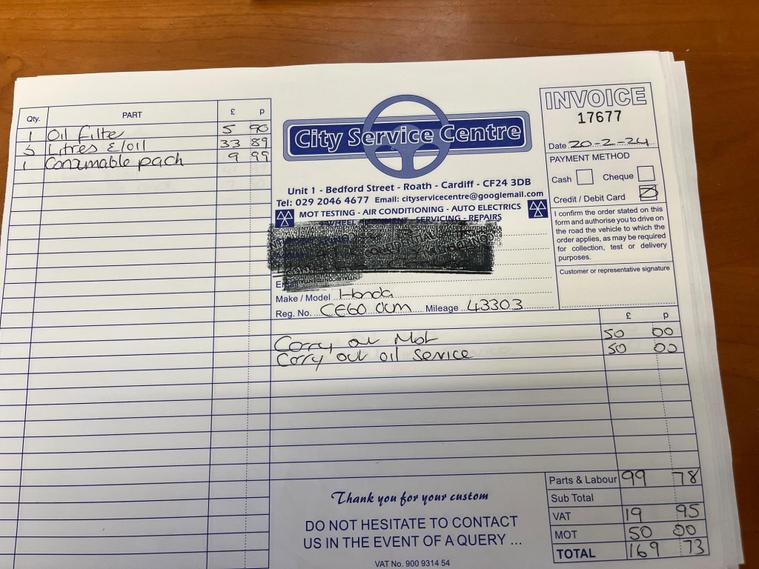 Qty. PART £ P
1 Oil filter 5 90
5 Litres E/oil 33 89
1 Conzmable pach 9 99
City Service Centre
Unit 1 - Bedford Street - Roath - Cardiff - CF24 3DB
Tel: 029 2046 4677 Email: cityservicecentre@googlemail.com
MOT TESTING - AIR CONDITIONING - AUTO ELECTRICS
SERVICING - REPAIRS
Make / Model Honda
Reg. No. CE60 Mileage 43303
INVOICE
17677
Date 20-2-24
PAYMENT METHOD
Cash Cheque
Credit / Debit Card
I confirm the order stated on this
form and authorise you to drive on
the road the vehicle to which the
order applies, as may be required
for collection, test or delivery
purposes.
Customer or representative signature
£ P
Carry out Mot 50 00
Carry out oil service 50 00
Thank you for your custom
DO NOT HESITATE TO CONTACT
US IN THE EVENT OF A QUERY ...
VAT No. 900 9314 54
Parts & Labour 99 78
Sub Total
VAT 19 95
MOT 50 00
TOTAL 169 73